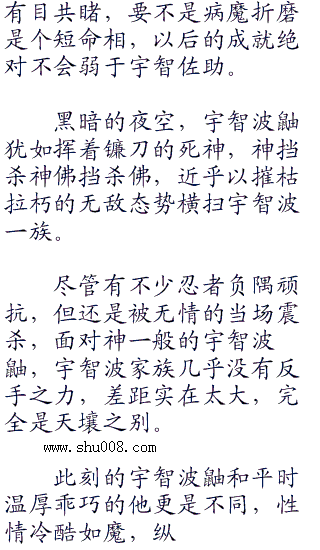 有目共睹，要不是病魔折磨
是个短命相，以后的成就绝
对不会弱于宇智佐助。
黑暗的夜空，宇智波鼬
犹如挥着镰刀的死神，神挡
杀神佛挡杀佛，近乎以摧枯
拉朽的无敌态势横扫宇智波
一族。
尽管有不少忍者负隅顽
抗，但还是被无情的当场震
杀，面对神一般的宇智波
鼬，宇智波家族几乎没有反
手之力，差距实在太大，完
全是天壤之别。
www.shu008.com
此刻的宇智波鼬和平时
温厚乖巧的他更是不同，性
情冷酷如魔，纵